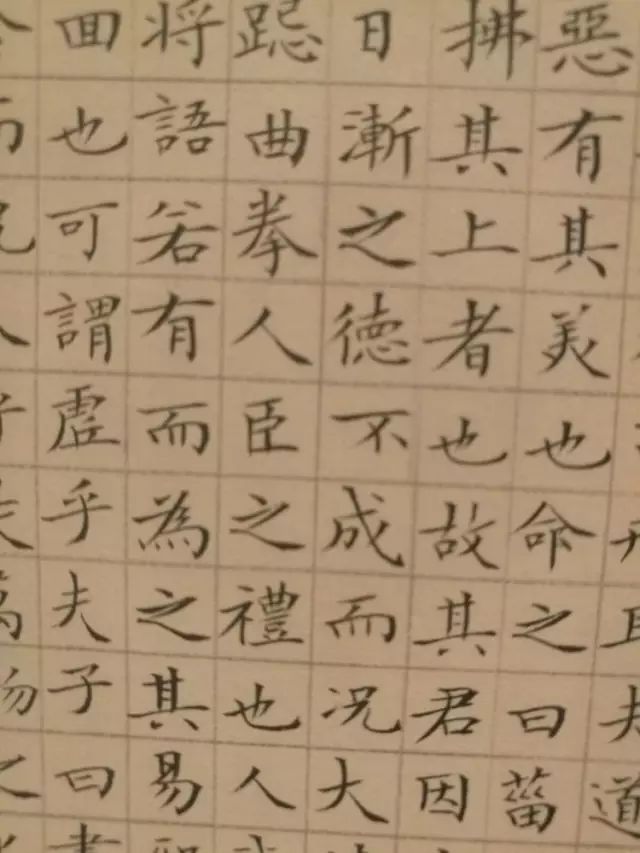 道
惡有其美也命之曰菑
拂其上者也故其君因
日漸之德不成而况大
跽曲拳人臣之禮也人
将語若有而為之其易
囬也可謂虚乎夫子曰